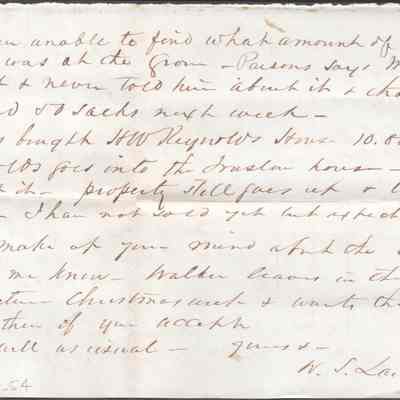 unable to find what amount of
was at the Grove - Parsons says
& never told him about it &
50 sacks next week -
bought HW Reynolds House 10.
goes into the house -
it - property still goes up &
I have not sold yet but expect
make up your mind about the
me know - Walker leaves in
Christmas week & wants
then if you accept
well as usual - yours &-
W. S.
54